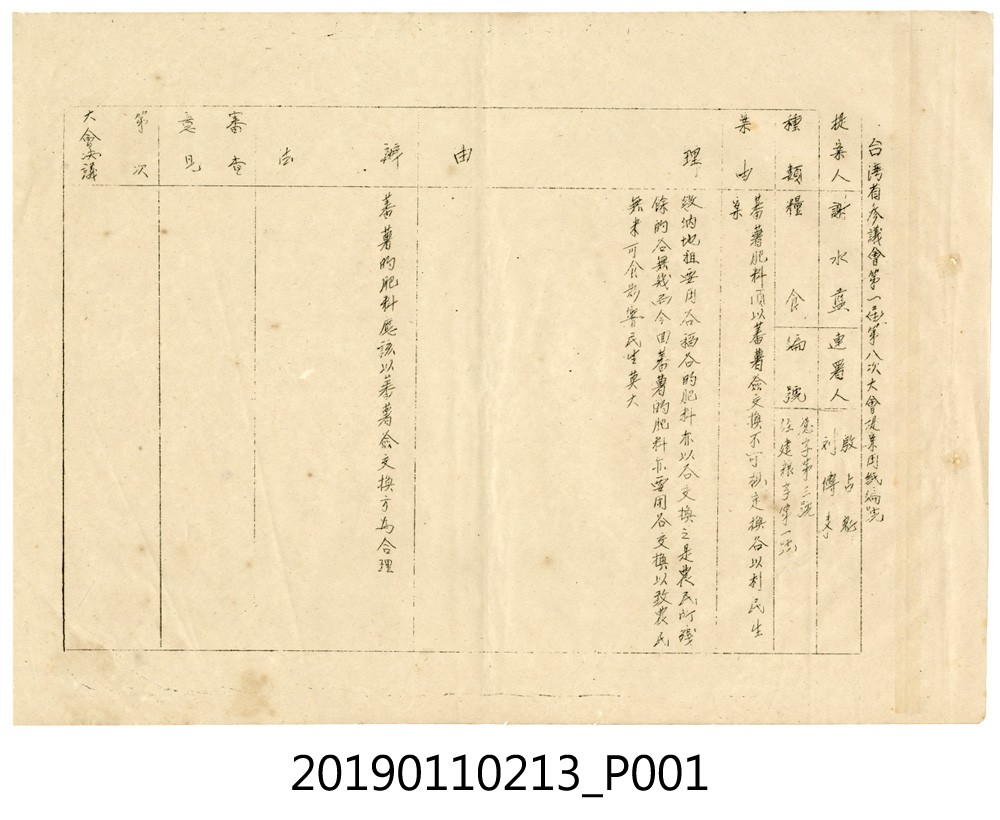 台湾省参議會第一屆第八次大會提案用紙編號
提案人 謝水藍 連署人 殷占魁 劉傳來
種類 糧食 編號 總字第三號
位建粮字第一號
案由 蕃薯肥料須以蕃薯簽交換不可規定換谷以利民生
案
理由 繳納地租要用谷稻谷的肥料亦以谷交換之是農民所殘
餘的谷無幾而今回蕃薯的肥料亦要用谷交換以致農民
無米可食影響民生莫大
辦法 蕃薯的肥料應該以蕃薯簽交換方為合理
審查
意見
第 次
大會決議
20190110213_P001